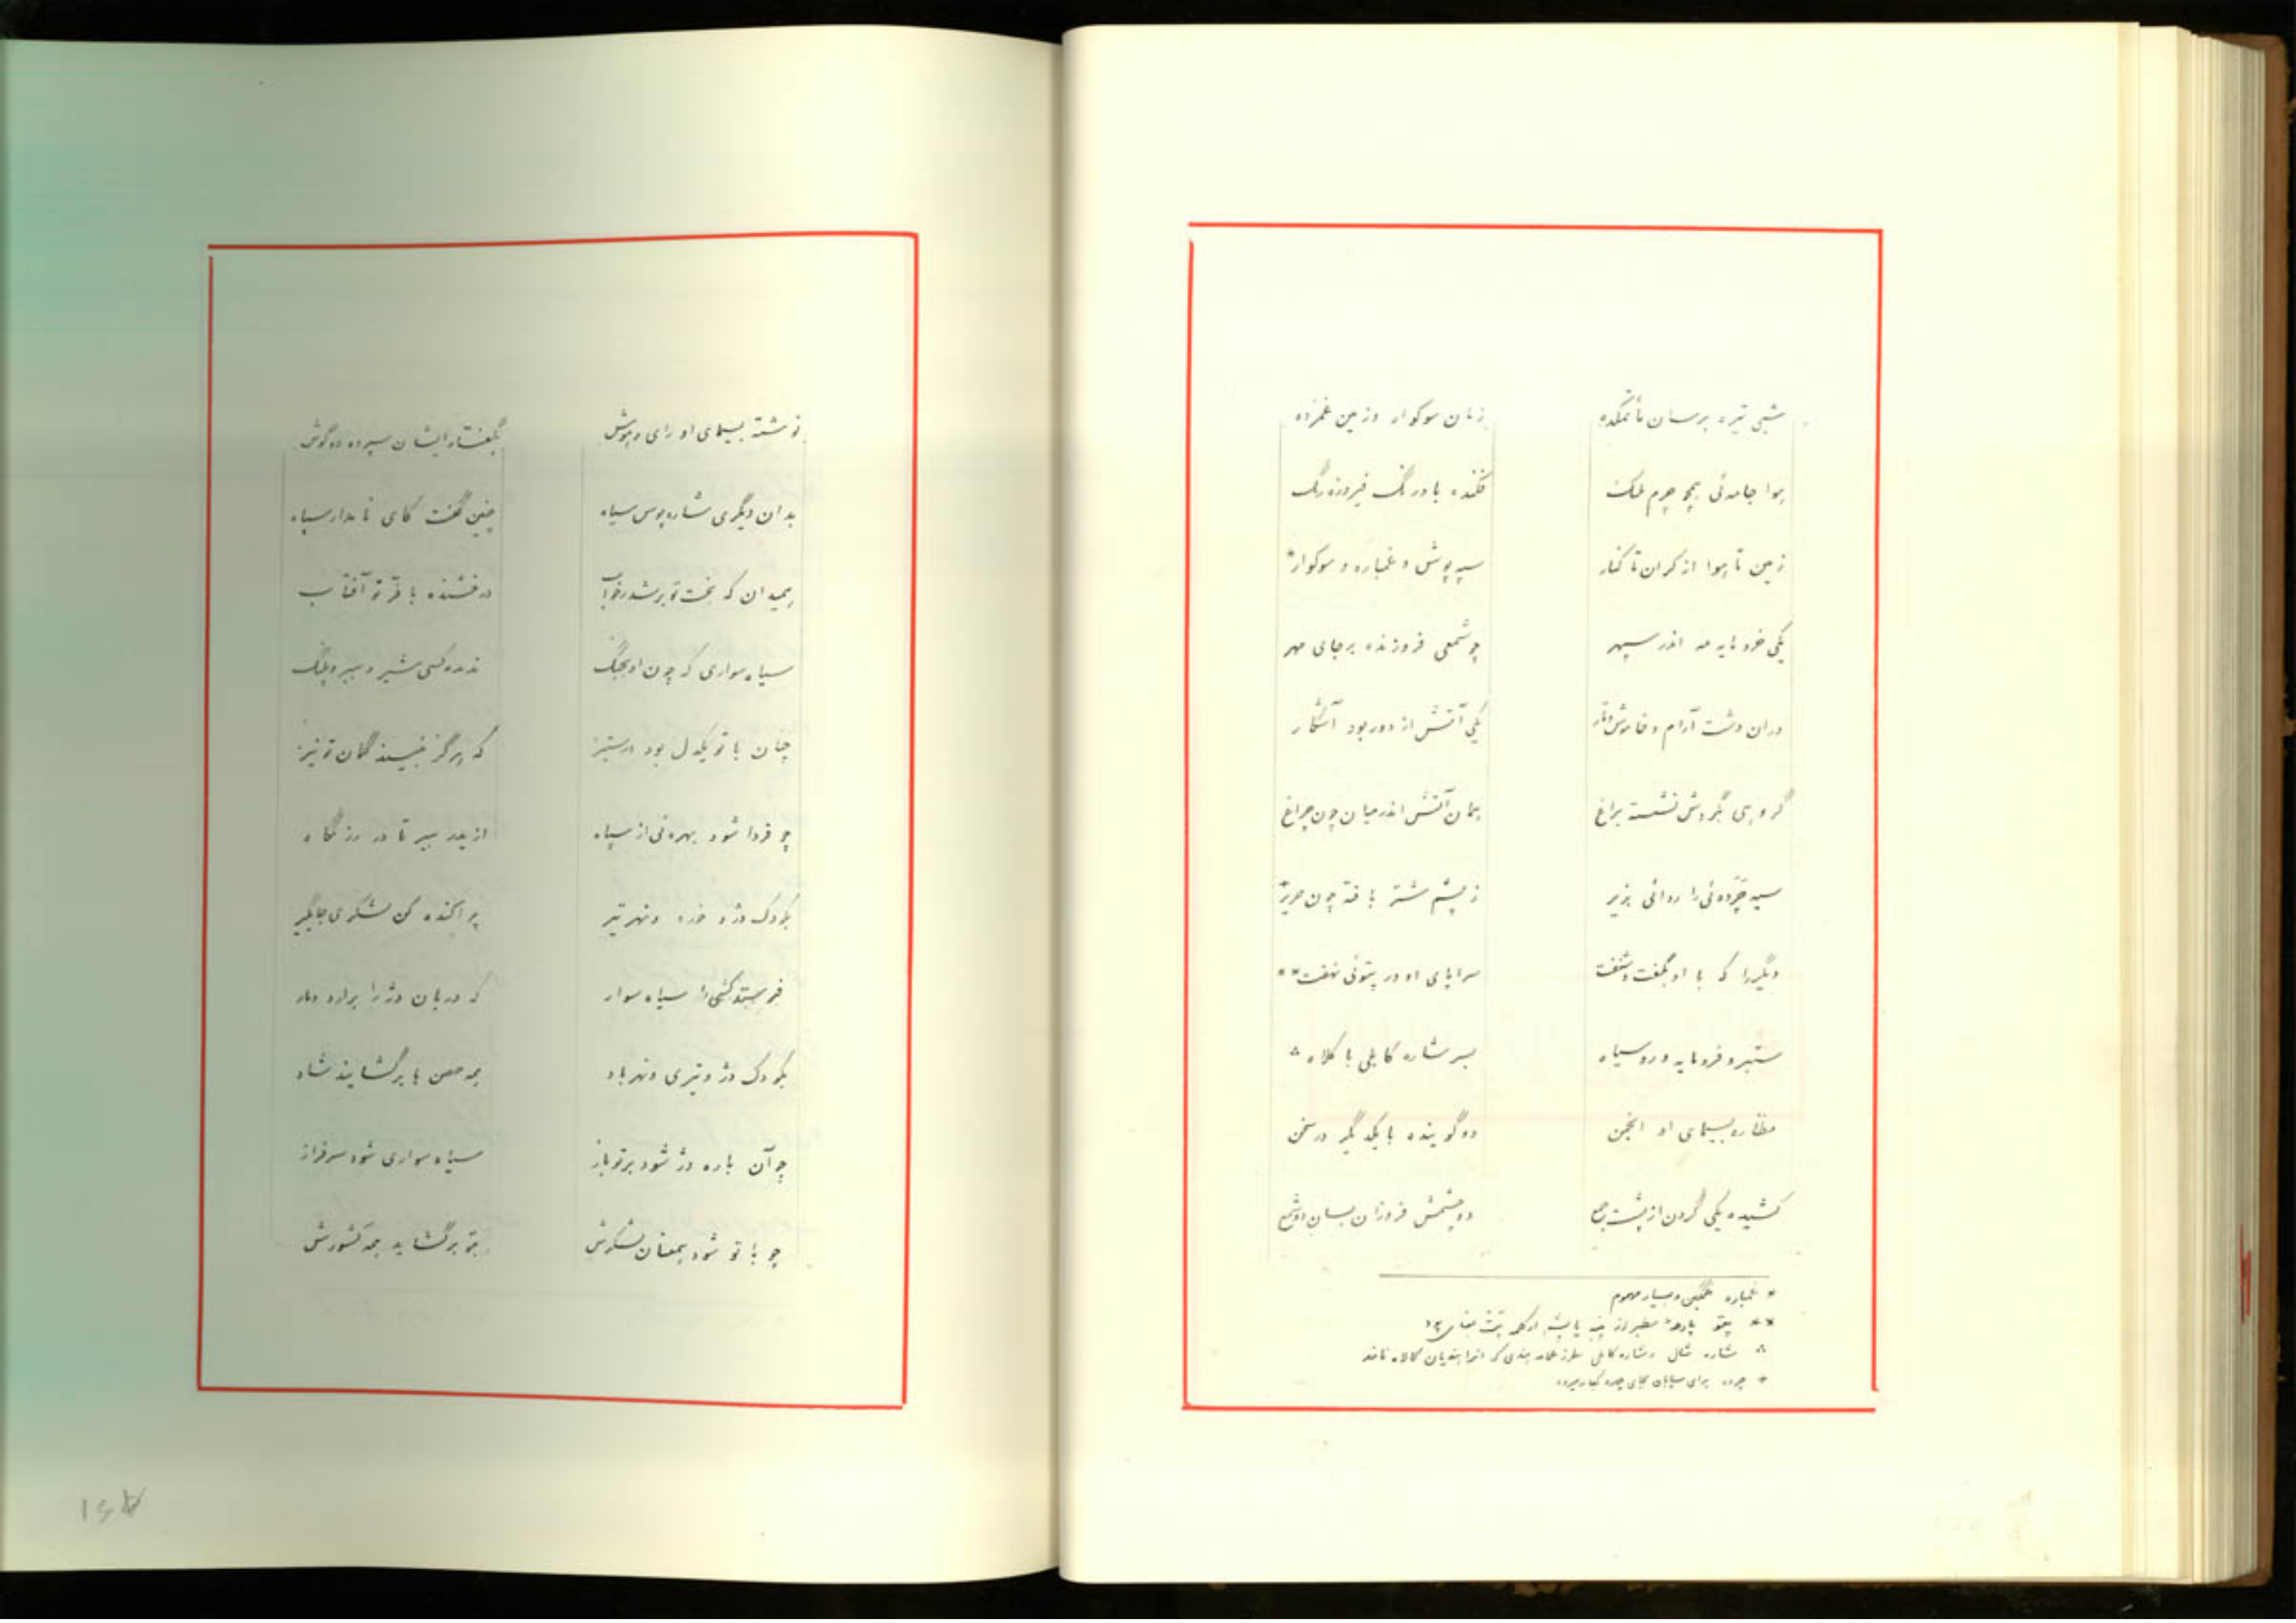 شبی تیره برسان ماتمکده زمان سوکوار و زمین غمزده
هوا جامه‌ئی همچو چرم فکنده باد رنگ فیروزه رنگ
زمین تا هوا از کران تا کنار سیه پوش و غمباره و سوکوار*
یکی خرد مایه مه اندر سپهر چو شمعی فروزنده بر جای مهر
در آن دشت آرام و خاموش و تار یکی آتش از دور بود آشکار
گروهی بگردش نشسته براغ همان آتش اندر میان چون چراغ
سیه چرده‌ئی را ردائی بزیر ز پشم شتر بافته چون حریر+
دیگر را که با او بگفت و شنفت سراپای او در پتوئی نهفت**
ستبر و فرومایه و روسیاه بسر شاره کابلی با کلاه
نظاره بسیمای او انجمن دو گوینده با یکدگر در سخن
کشیده یکی گردن از پشت جمع دو چشمش فروزان بسان دو شمع
* غمباره غمگین و بسیار مهموم
** پتو پارچه سطبر از پنبه یا پشم از کلمه
شاره شال و شاره کابلی طرز عمامه هندی که آنرا هندیان کالاه نامند
+ چرده برای سیاهان بجای چهره بکار میرود
نوشته بسیمای او رای و هوش بگفتار ایشان سپرده دو گوش
بدان دیگری شاره پوس سیاه چنین گفت کای نامدار سپاه
همیدان که بخت تو بر شد ز خواب درخشنده با فر تو آفتاب
سیاه سواری که چون او بجنگ ندیده کسی شیر و ببر و پلنگ
چنان با تو یکدل بود در ستیز که هرگز نبیند گمان تو نیز
چو فردا شود بهره‌ئی از سپاه از ببر تا در رزمگاه
بکودک دژ و خره و نهر تیر پراکنده کن لشکری جایگیر
فرستد کسی را سیاه سوار که دربان دژ را برآرد دمار
بکودک دژ و تیری و نهر باد همه حصن‌ها برگشایند شاد
چو آن باره دژ شود بر تو باز سیاه سواری شود سرفراز
چو با تو شود همعنان لشکرش بتو برگشاید همه کشورش